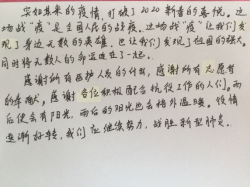 突如其来的疫情,打破了2020新春的喜悦。这
场战"疫"是全国人民的战疫。这场战"疫"让我们发
现了身边无数的英雄,也让我们发现了祖国的强大。
同时将无数人的命运连在了一起。
感谢所有医护人员的付出,感谢所有志愿者
的奉献,感谢各位积极配合抗疫工作的人们。雨
后便会有阳光,雨后的阳光也会格外温暖。疫情
逐渐好转,我们应继续努力,战胜新型肺炎。